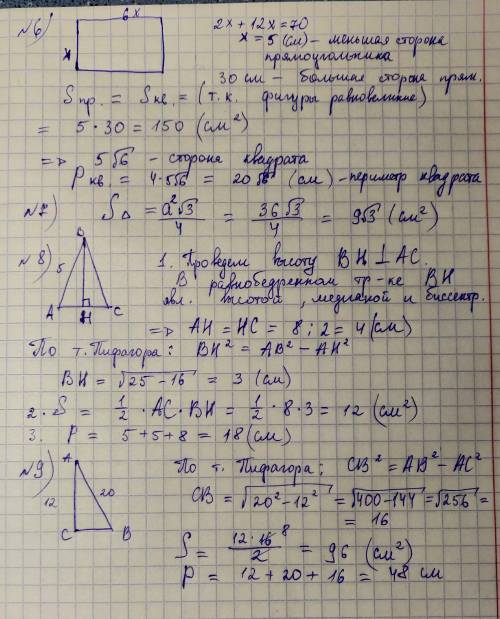 №6)
6x
x
2x + 12x = 70
x = 5 (см) – меньшая сторона
прямоугольника
30 см – большая сторона прям.
Sпр. = Sкв. = (т.к. фигуры равновеликие)
= 5 · 30 = 150 (см²)
=> 5√6 – сторона квадрата
Pкв. = 4·5√6 = 20√6 (см) – периметр квадрата
№7) S△ = a²√3/4 = 36√3/4 = 9√3 (см²)
№8)
5
A H C
1. Проведем высоту BH ⊥ AC.
В равнобедренном тр-ке BH
явл. высотой, медианой и биссектр.
=> AH = HC = 8 : 2 = 4 (см)
По т. Пифагора: BH² = AB² – AH²
BH = √25 – 16 = 3 (см)
2. S = 1/2 · AC · BH = 1/2 · 8 · 3 = 12 (см²)
3. P = 5 + 5 + 8 = 18 (см)
№9)
A
12 20
C B
По т. Пифагора: CB² = AB² – AC²
CB = √20² – 12² = √400 – 144 = √256 =
= 16
S = 12 · 16 8/2 = 96 (см²)
P = 12 + 20 + 16 = 48 см